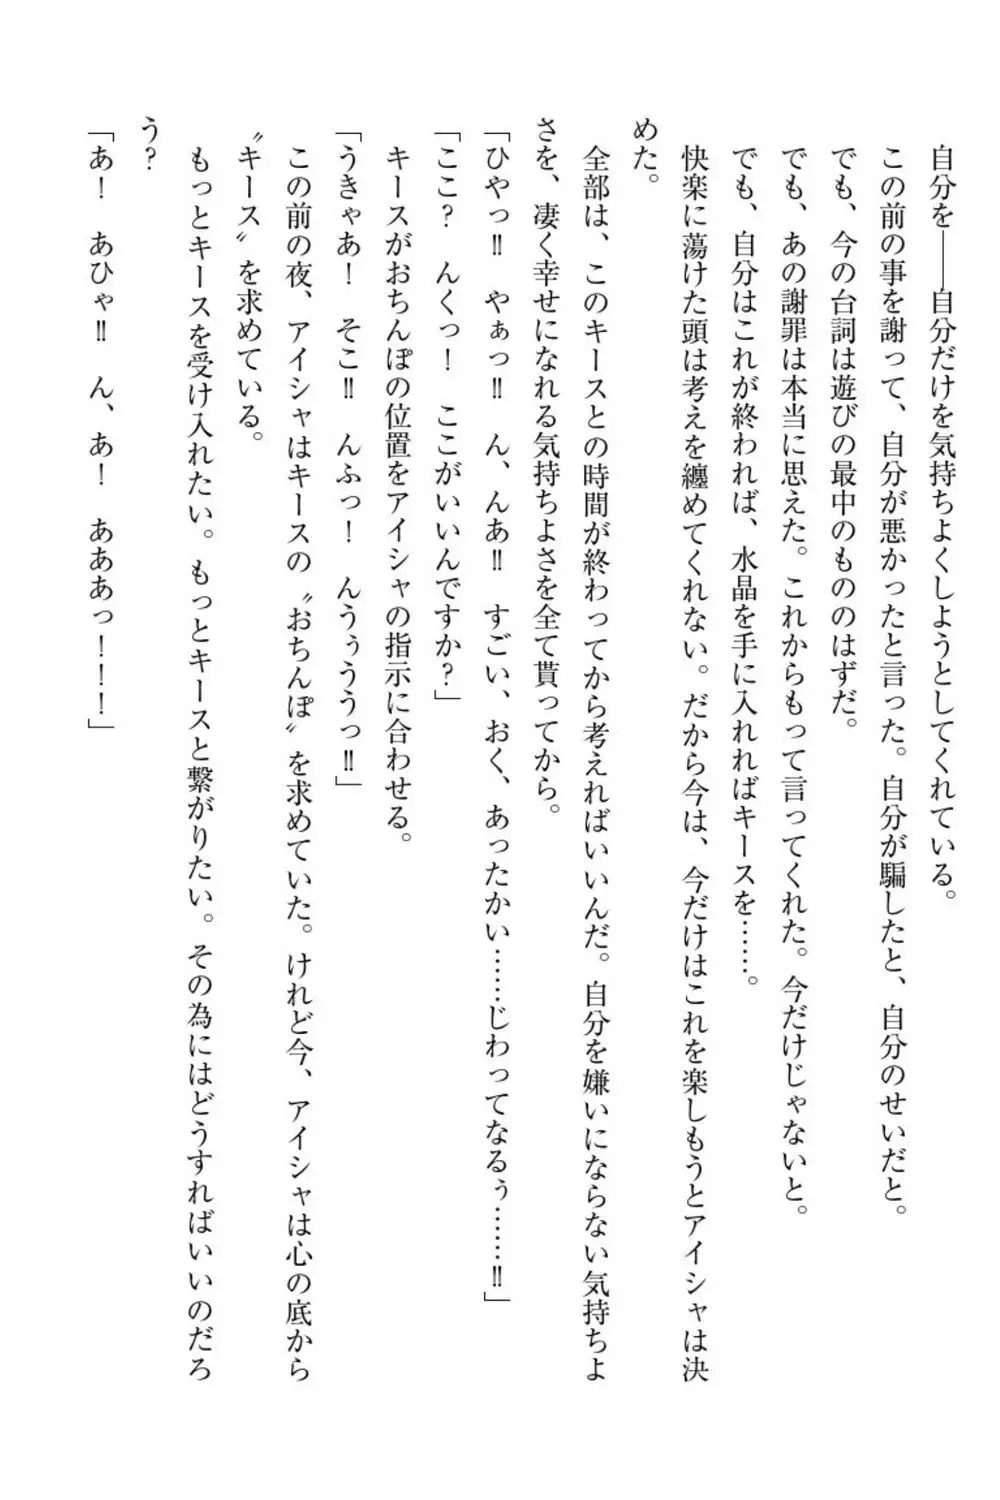 自分を――自分だけを気持ちよくしようとしてくれている。
この前の事を謝って、自分が悪かったと言った。自分が騙したと、自分のせいだと。
でも、今の台詞は遊びの最中のもののはずだ。
でも、あの謝罪は本当に思えた。これからもって言ってくれた。今だけじゃないと。
でも、自分はこれが終われば、水晶を手に入れればキースを……。
快楽に蕩けた頭は考えを纏めてくれない。だから今は、今だけはこれを楽しもうとアイシャは決
めた。
全部は、このキースとの時間が終わってから考えればいいんだ。自分を嫌いにならない気持ちよ
さを、凄く幸せになれる気持ちよさを全て貰ってから。
「ひやっ‼　やぁっ‼　ん、んあ‼　すごい、おく、あったかい……じわってなるぅ……‼」
「ここ？　んくっ！　ここがいいんですか？」
キースがおちんぽの位置をアイシャの指示に合わせる。
「うきゃあ！　そこ‼　んふっ！　んうぅううっ‼」
この前の夜、アイシャはキースの〝おちんぽ〟を求めていた。けれど今、アイシャは心の底から
〝キース〟を求めている。
もっとキースを受け入れたい。もっとキースと繋がりたい。その為にはどうすればいいのだろ
う？
「あ！　あひゃ‼　ん、あ！　あああっ！！！」